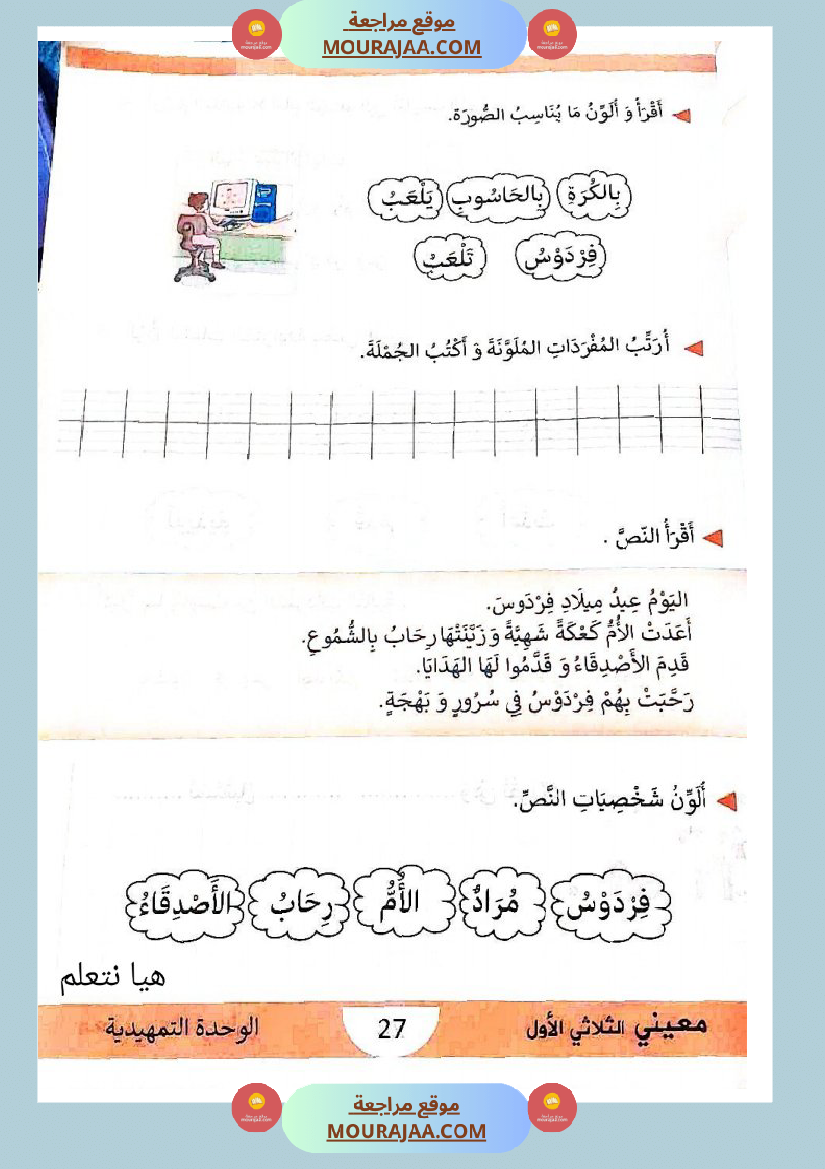 موقع مراجعة
MOURAJAA.COM
أَقْرَأُ وَ أُلَوِّنُ مَا يُنَاسِبُ الصُّورَةَ.
بِالكُرَةِ بِالحَاسُوبِ يَلْعَبُ
فِرْدَوْسُ تَلْعَبُ
أُرَتِّبُ المُفْرَدَاتِ المُلَوَّنَةَ وَ أَكْتُبُ الجُمْلَةَ.
أَقْرَأُ النّصَّ .
اليَوْمُ عِيدُ مِيلَادِ فِرْدَوسَ.
أَعَدَتْ الأُمُّ كَعْكَةً شَهِيَّةً وَ زَيَّنَتْهَا رِحَابُ بِالشُّمُوعِ.
قَدِمَ الأَصْدِقَاءُ وَ قَدَّمُوا لَهَا الهَدَايَا.
رَحَّبَتْ بِهُمْ فِرْدَوْسُ فِي سُرُورٍ وَ بَهْجَةٍ.
أُلَوِّنُ شَخْصِيَاتِ النَّصِّ.
فِرْدَوْسُ مُرَادٌ الأُمُّ رِحَابُ الأَصْدِقَاءُ
هيا نتعلم
معيني الثلاثي الأول 27 الوحدة التمهيدية
موقع مراجعة
MOURAJAA.COM